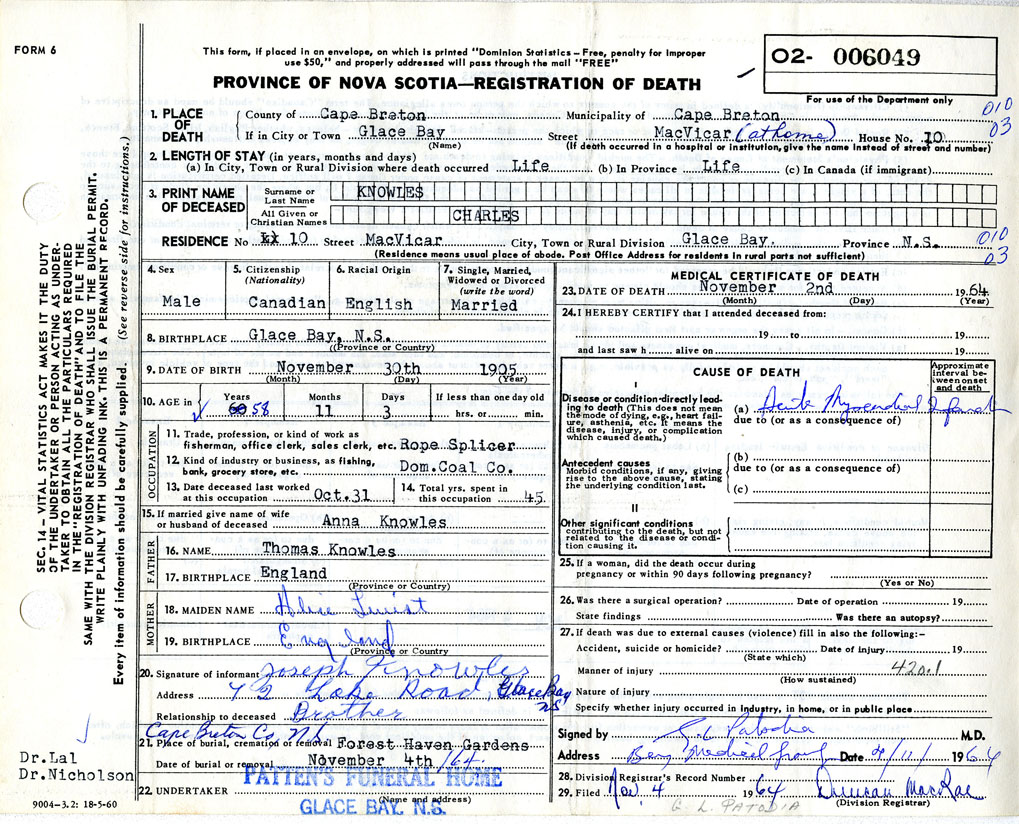 FORM 6
This form, if placed in an envelope, on which is printed "Dominion Statistics – Free, penalty for improper
use $50," and properly addressed will pass through the mail "FREE"
PROVINCE OF NOVA SCOTIA—REGISTRATION OF DEATH
02- 006049
For use of the Department only
010
03
SEC. 14 – VITAL STATISTICS ACT MAKES IT THE DUTY
OF THE UNDERTAKER OR PERSON ACTING AS UNDER-
TAKER TO OBTAIN ALL THE PARTICULARS REQUIRED
IN THE "REGISTRATION OF DEATH" AND TO FILE THE
SAME WITH THE DIVISION REGISTRAR WHO SHALL ISSUE THE BURIAL PERMIT.
WRITE PLAINLY WITH UNFADING INK. THIS IS A PERMANENT RECORD.
Every item of information should be carefully supplied. (See reverse side for instructions.)
1. PLACE OF DEATH
County of Cape Breton Municipality of Cape Breton
If in City or Town Glace Bay Street MacVicar (at home) House No. 10
(Name) (If death occurred in a hospital or institution, give the name instead of street and number)
2. LENGTH OF STAY (in years, months and days)
(a) In City, Town or Rural Division where death occurred Life (b) In Province Life (c) In Canada (if immigrant)
3. PRINT NAME OF DECEASED
Surname or Last Name KNOWLES
All Given or Christian Names CHARLES
RESIDENCE No 10 Street MacVicar City, Town or Rural Division Glace Bay. Province N.S.
010
03
(Residence means usual place of abode. Post Office Address for residents in rural parts not sufficient)
4. Sex
Male
5. Citizenship
(Nationality)
Canadian
6. Racial Origin
English
7. Single, Married,
Widowed or Divorced
(write the word)
Married
8. BIRTHPLACE Glace Bay, N.S.
(Province or Country)
9. DATE OF BIRTH November 30th 1905
(Month) (Day) (Year)
10. AGE in Years Months Days If less than one day old
60 58 11 3 hrs. or min.
OCCUPATION
11. Trade, profession, or kind of work as
fisherman, office clerk, sales clerk, etc. Rope Splicer
12. Kind of industry or business, as fishing,
bank, grocery store, etc. Dom.Coal Co.
13. Date deceased last worked
at this occupation Oct.31
14. Total yrs. spent in
this occupation 45
15. If married give name of wife
or husband of deceased Anna Knowles
FATHER
16. NAME Thomas Knowles
17. BIRTHPLACE England
(Province or Country)
MOTHER
18. MAIDEN NAME Alice
19. BIRTHPLACE England
(Province or Country)
20. Signature of informant Joseph Knowles
Address 72 Lake Road, Glace Bay NS
Relationship to deceased Brother
Cape Breton Co, NS
21. Place of burial, cremation or removal Forest Haven Gardens
Date of burial or removal November 4th /64
22. UNDERTAKER PATTEN'S FUNERAL HOME
(Name and address)
GLACE BAY, N.S.
Dr.Lal
Dr.Nicholson
9004–3.2: 18-5-60
MEDICAL CERTIFICATE OF DEATH
23. DATE OF DEATH November 2nd 1964
(Month) (Day) (Year)
24. I HEREBY CERTIFY that I attended deceased from:
19 to 19
and last saw h alive on 19
CAUSE OF DEATH
Approximate
interval be-
tween onset
and death
I
Disease or condition directly lead-
ing to death (This does not mean
the mode of dying, e.g., heart fail-
ure, asthenia, etc. It means the
disease, injury, or complication
which caused death.)
(a) Acute Myocardial Infarct
due to (or as a consequence of)
Antecedent causes
Morbid conditions, if any, giving
rise to the above cause, stating
the underlying condition last.
(b)
due to (or as a consequence of)
(c)
II
Other significant conditions
contributing to the death, but not
related to the disease or condi-
tion causing it.
25. If a woman, did the death occur during
pregnancy or within 90 days following pregnancy?
(Yes or No)
26. Was there a surgical operation? Date of operation 19
State findings Was there an autopsy?
27. If death was due to external causes (violence) fill in also the following:–
Accident, suicide or homicide? Date of injury 19
(State which)
Manner of injury 420.1
(How sustained)
Nature of injury
Specify whether injury occurred in industry, in home, or in public place
Signed by G L Patodia M.D.
Address Medical Group Date 4/11/ 1964
28. Division Registrar's Record Number
29. Filed Nov. 4 1964 Duncan MacRae
(Division Registrar)
G. L. PATODIA